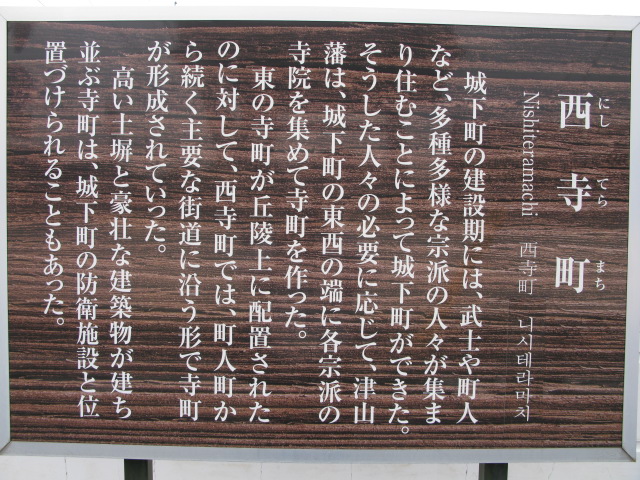 西寺町
にし てら まち
Nishiteramachi 西寺町 니시테라마치
城下町の建設期には、武士や町人
など、多種多様な宗派の人々が集ま
り住むことによって城下町ができた。
そうした人々の必要に応じて、津山
藩は、城下町の東西の端に各宗派の
寺院を集めて寺町を作った。
東の寺町が丘陵上に配置された
のに対して、西寺町では、町人町か
ら続く主要な街道に沿う形で寺町
が形成されていった。
高い土塀と豪壮な建築物が建ち
並ぶ寺町は、城下町の防衛施設と位
置づけられることもあった。